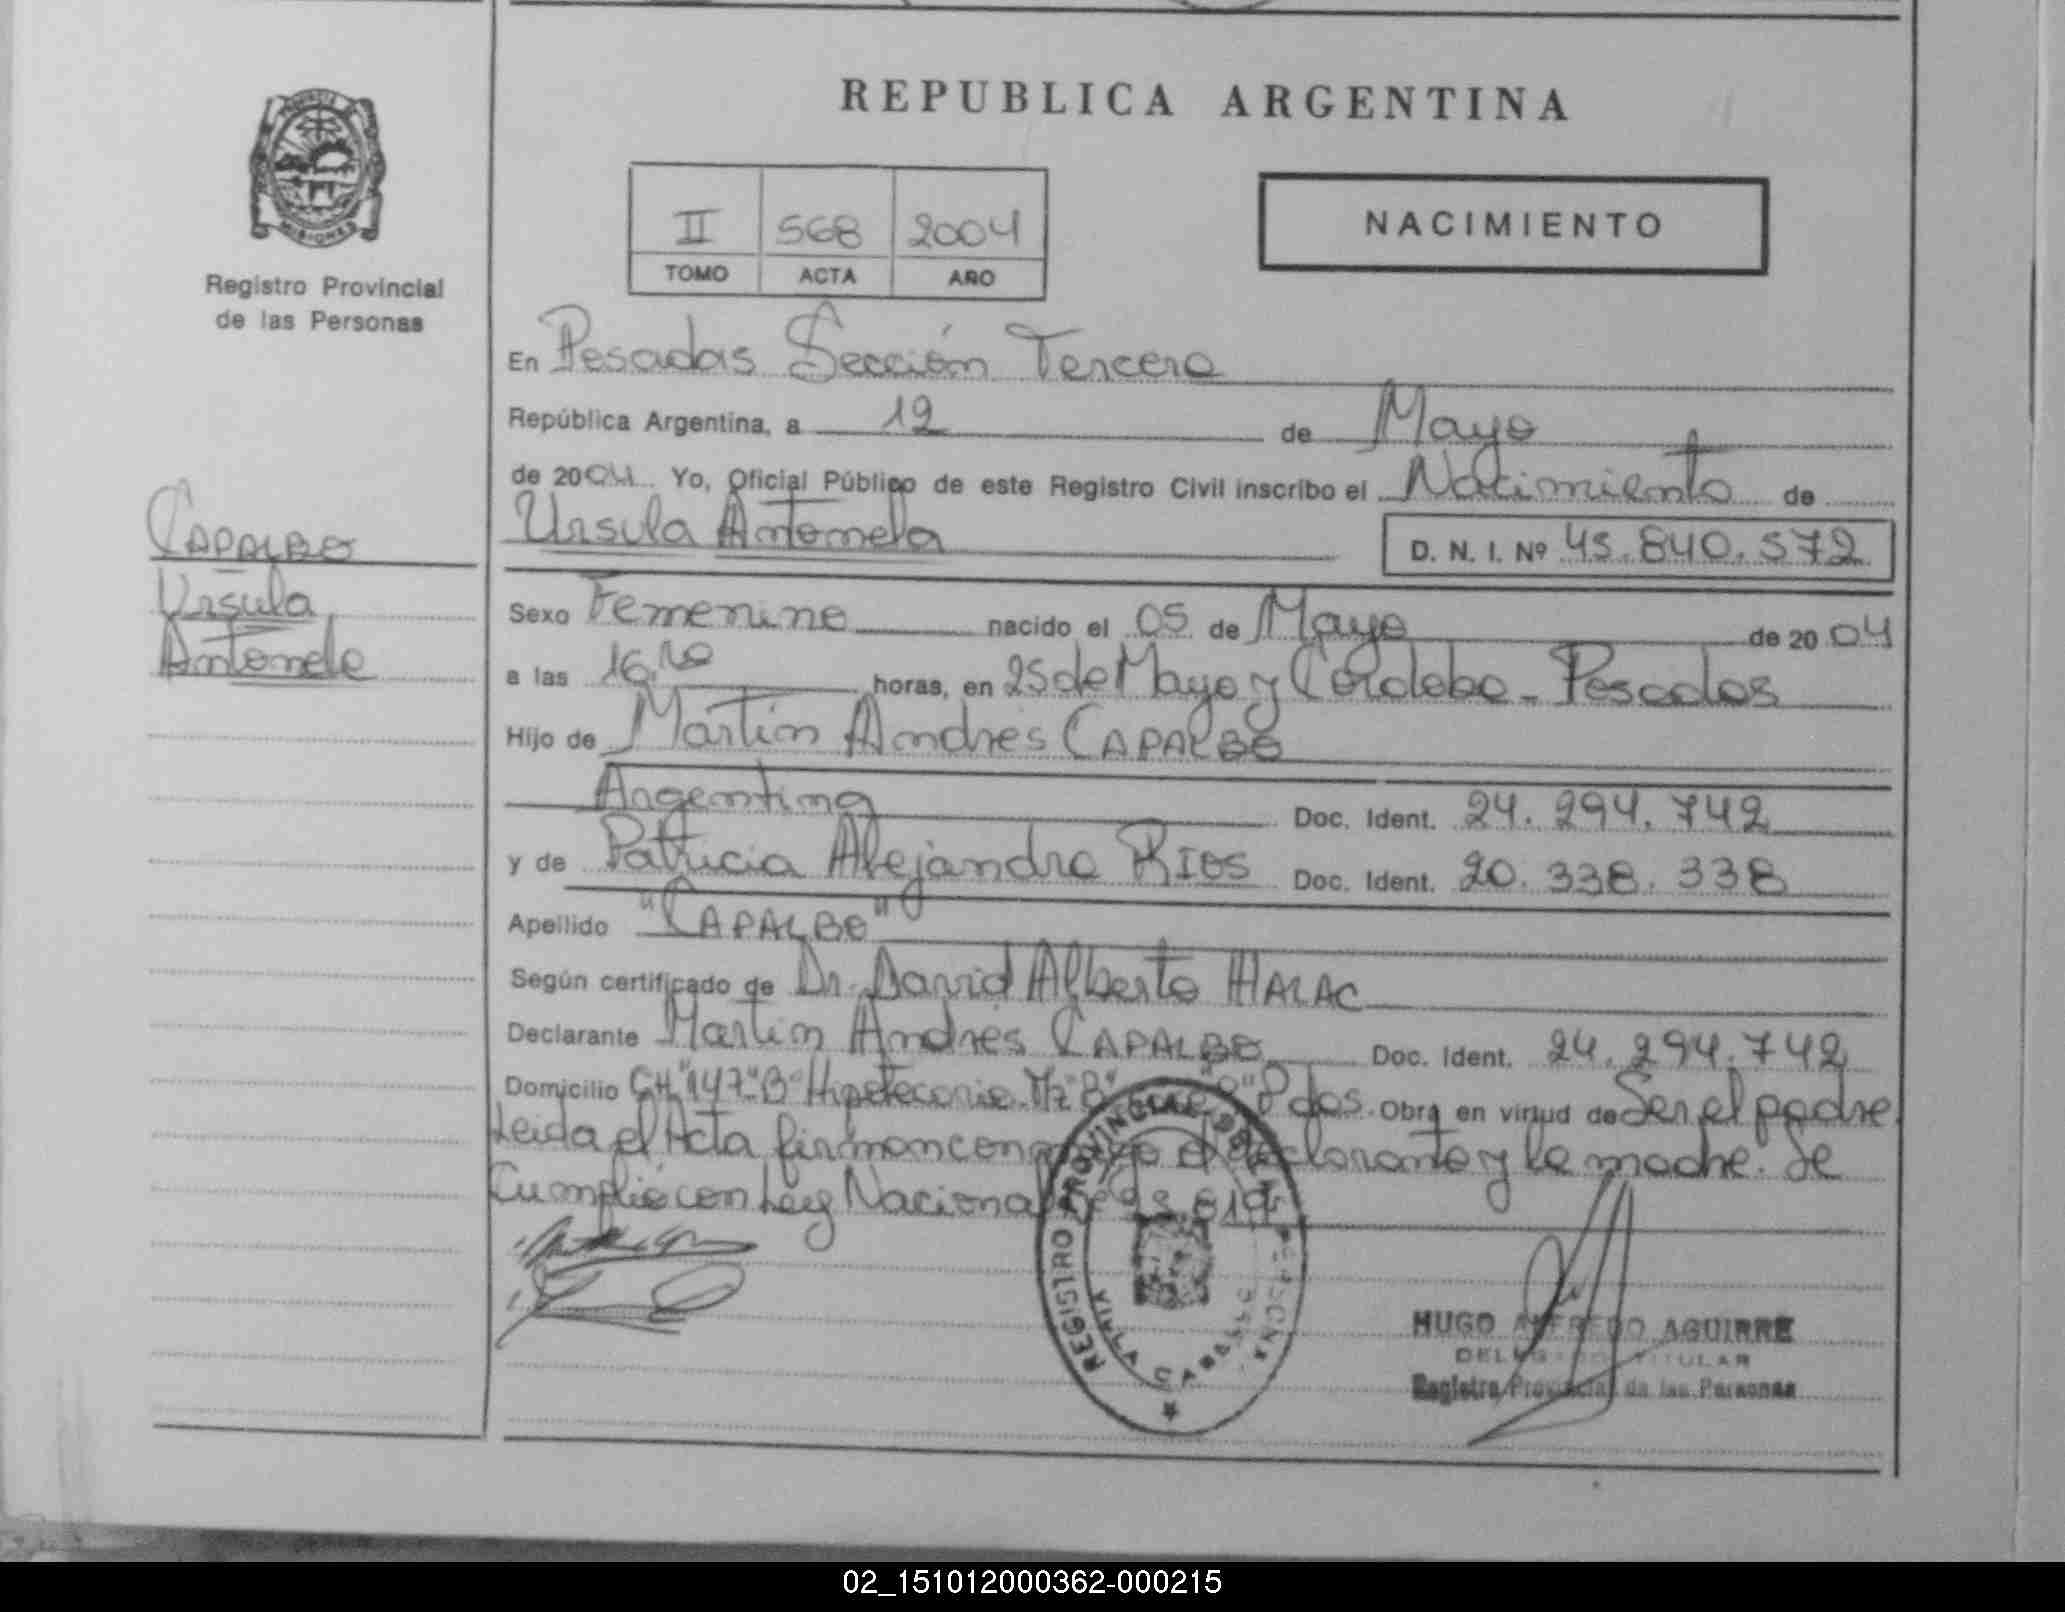 REPUBLICA ARGENTINA
MISIONES
Registro Provincial
de las Personas
II 568 2004
TOMO ACTA AÑO
NACIMIENTO
En Posadas Sección Tercera
República Argentina, a 12 de Mayo
de 2004 Yo, Oficial Público de este Registro Civil inscribo el Nacimiento de
Ursula Antonela
D. N. I. Nº 45.840.572
CAPALBO
Ursula
Antonela
Sexo Femenino nacido el 05 de Mayo de 2004
a las 16, horas, en 25 de Mayo y Córdoba - Posadas
Hijo de Martín Andrés CAPALBO
Argentina Doc. Ident. 24.294.742
y de Patricia Alejandra RIOS Doc. Ident. 20.338.338
Apellido "CAPALBO"
Según certificado de Dr. David Alberto HALAC
Declarante Martín Andrés CAPALBO Doc. Ident. 24.294.742
Domicilio CH "147" B° Hipotecario Mz "B" Pdas. Obra en virtud de Ser el padre
Leida el Acta firman conmigo el declarante y la madre. Se
Cumplió con Ley Nacional
REGISTRO PROVINCIAL DE LAS PERSONAS
POSADAS
HUGO ALFREDO AGUIRRE
DELEGADO TITULAR
Registro Provincial de las Personas
02_151012000362-000215